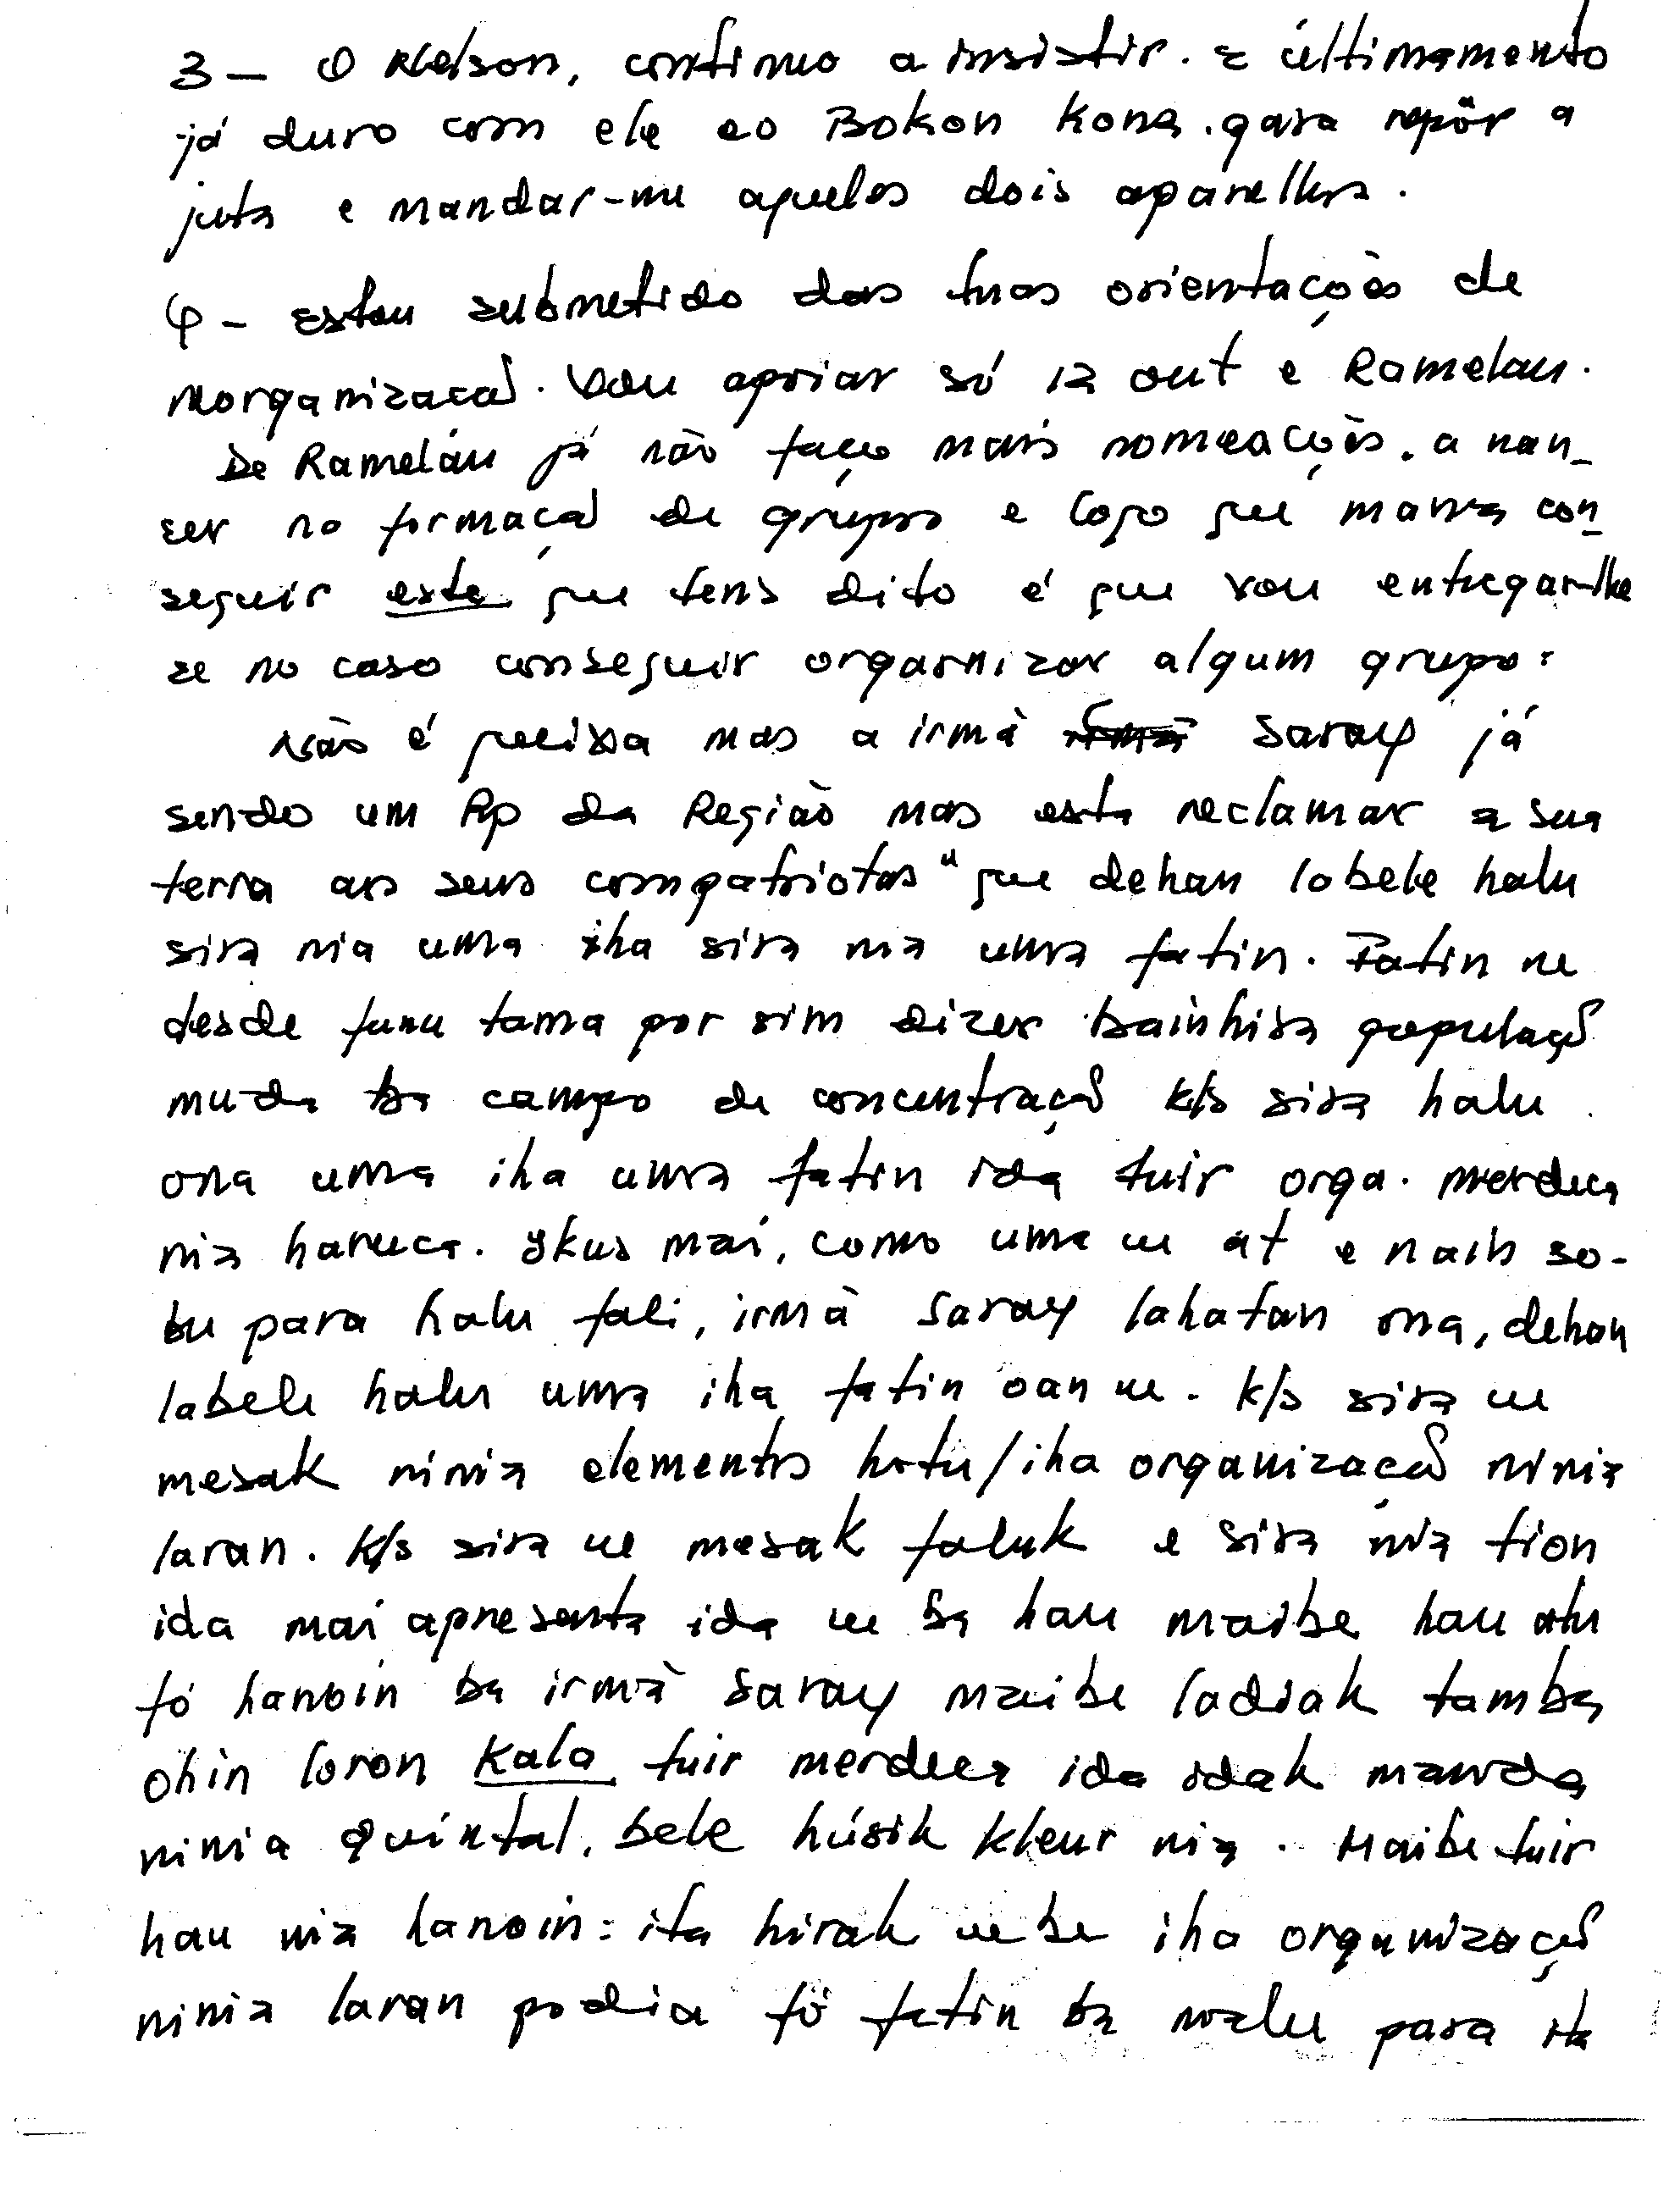 3 - O Nelson, continuo a insistir. E últimamento
já duro com ele eo Bokon Kona. para repôr a
juta e mandar-me aqueles dois aparelhos.
4 - Estou submetido das tuas orientaçoẽs de
reorganizaçaõ. Vou apoiar só 12 out e Ramelau.
De Ramelau já não faço mais nomeaçoẽs. a nan-
ser na formaçaõ de grupos e logo que mana con-
seguir este que tens dito é que vou entregar-lhe
se no caso conseguir organizar algum grupo.
Não é queixa mas a irmã Saray já
sendo um Rp da Região mas esta reclamar a sua
terra aos seus compatriotas " que dehan labele halu
sira nia uma iha sira nia uma fatin. Fatin ne
desde funu tama por sim dizer bainhira populaçaõ
muda ba campo de concentraçaõ k/s sira halu
ona uma iha uma fatin ida tuir orga. merdeca
nia haruca. Ikus mai, como uma ne at e naih so-
bu para halu fali, irmã Saray lahatan ona, dehan
labele halu uma iha fatin oan ne. k/s sira ne
mesak ninia elementos hotu/iha organizaçaõ ninia
laran. K/s sira ne mesak faluk e sira nia tion
ida mai apresenta ida ne ba hau maibe hau atu
fó hanoin ba irmã Saray maibe ladiak tamba
ohin loron Kala tuir merdeca ida idak manda
ninia quintal, bele húsik kleur nia. Maibe tuir
hau nia hanoin: ita hirak nebe iha organizaçaõ
ninia laran podia fó fatin ba malu para ita